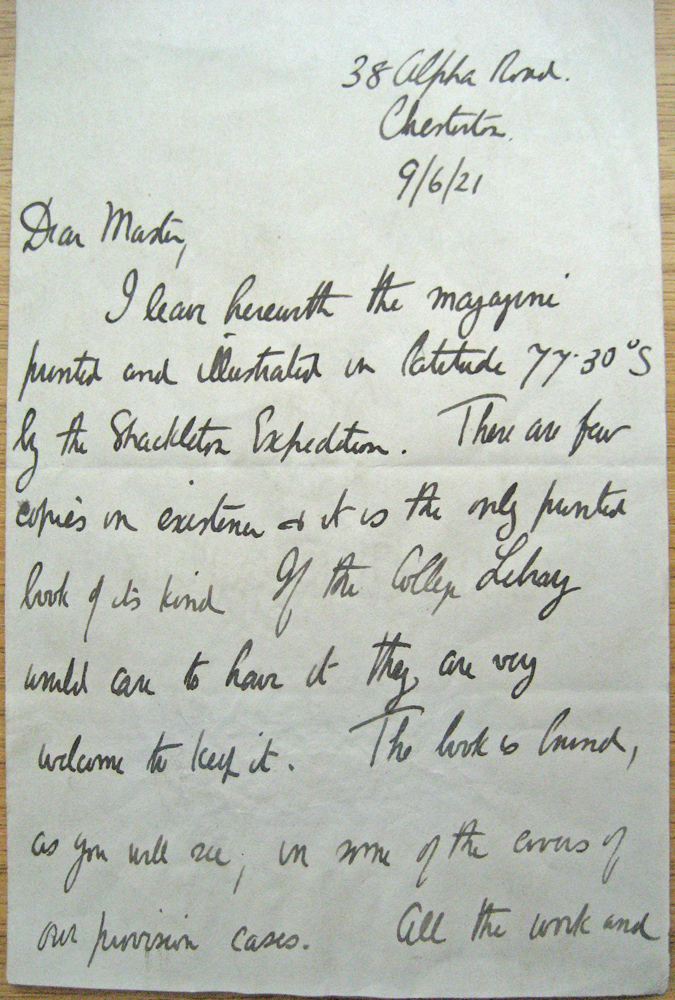 38 Alpha Road.
Chesterton.
9/6/21
Dear Master,
I leave herewith the magazine
printed and illustrated in latitude 77·30°S
by the Shackleton Expedition. There are few
copies in existence & it is the only printed
book of its kind If the College Library
would care to have it they are very
welcome to keep it. The book is bound,
as you will see, in some of the covers of
our provision cases. All the work and